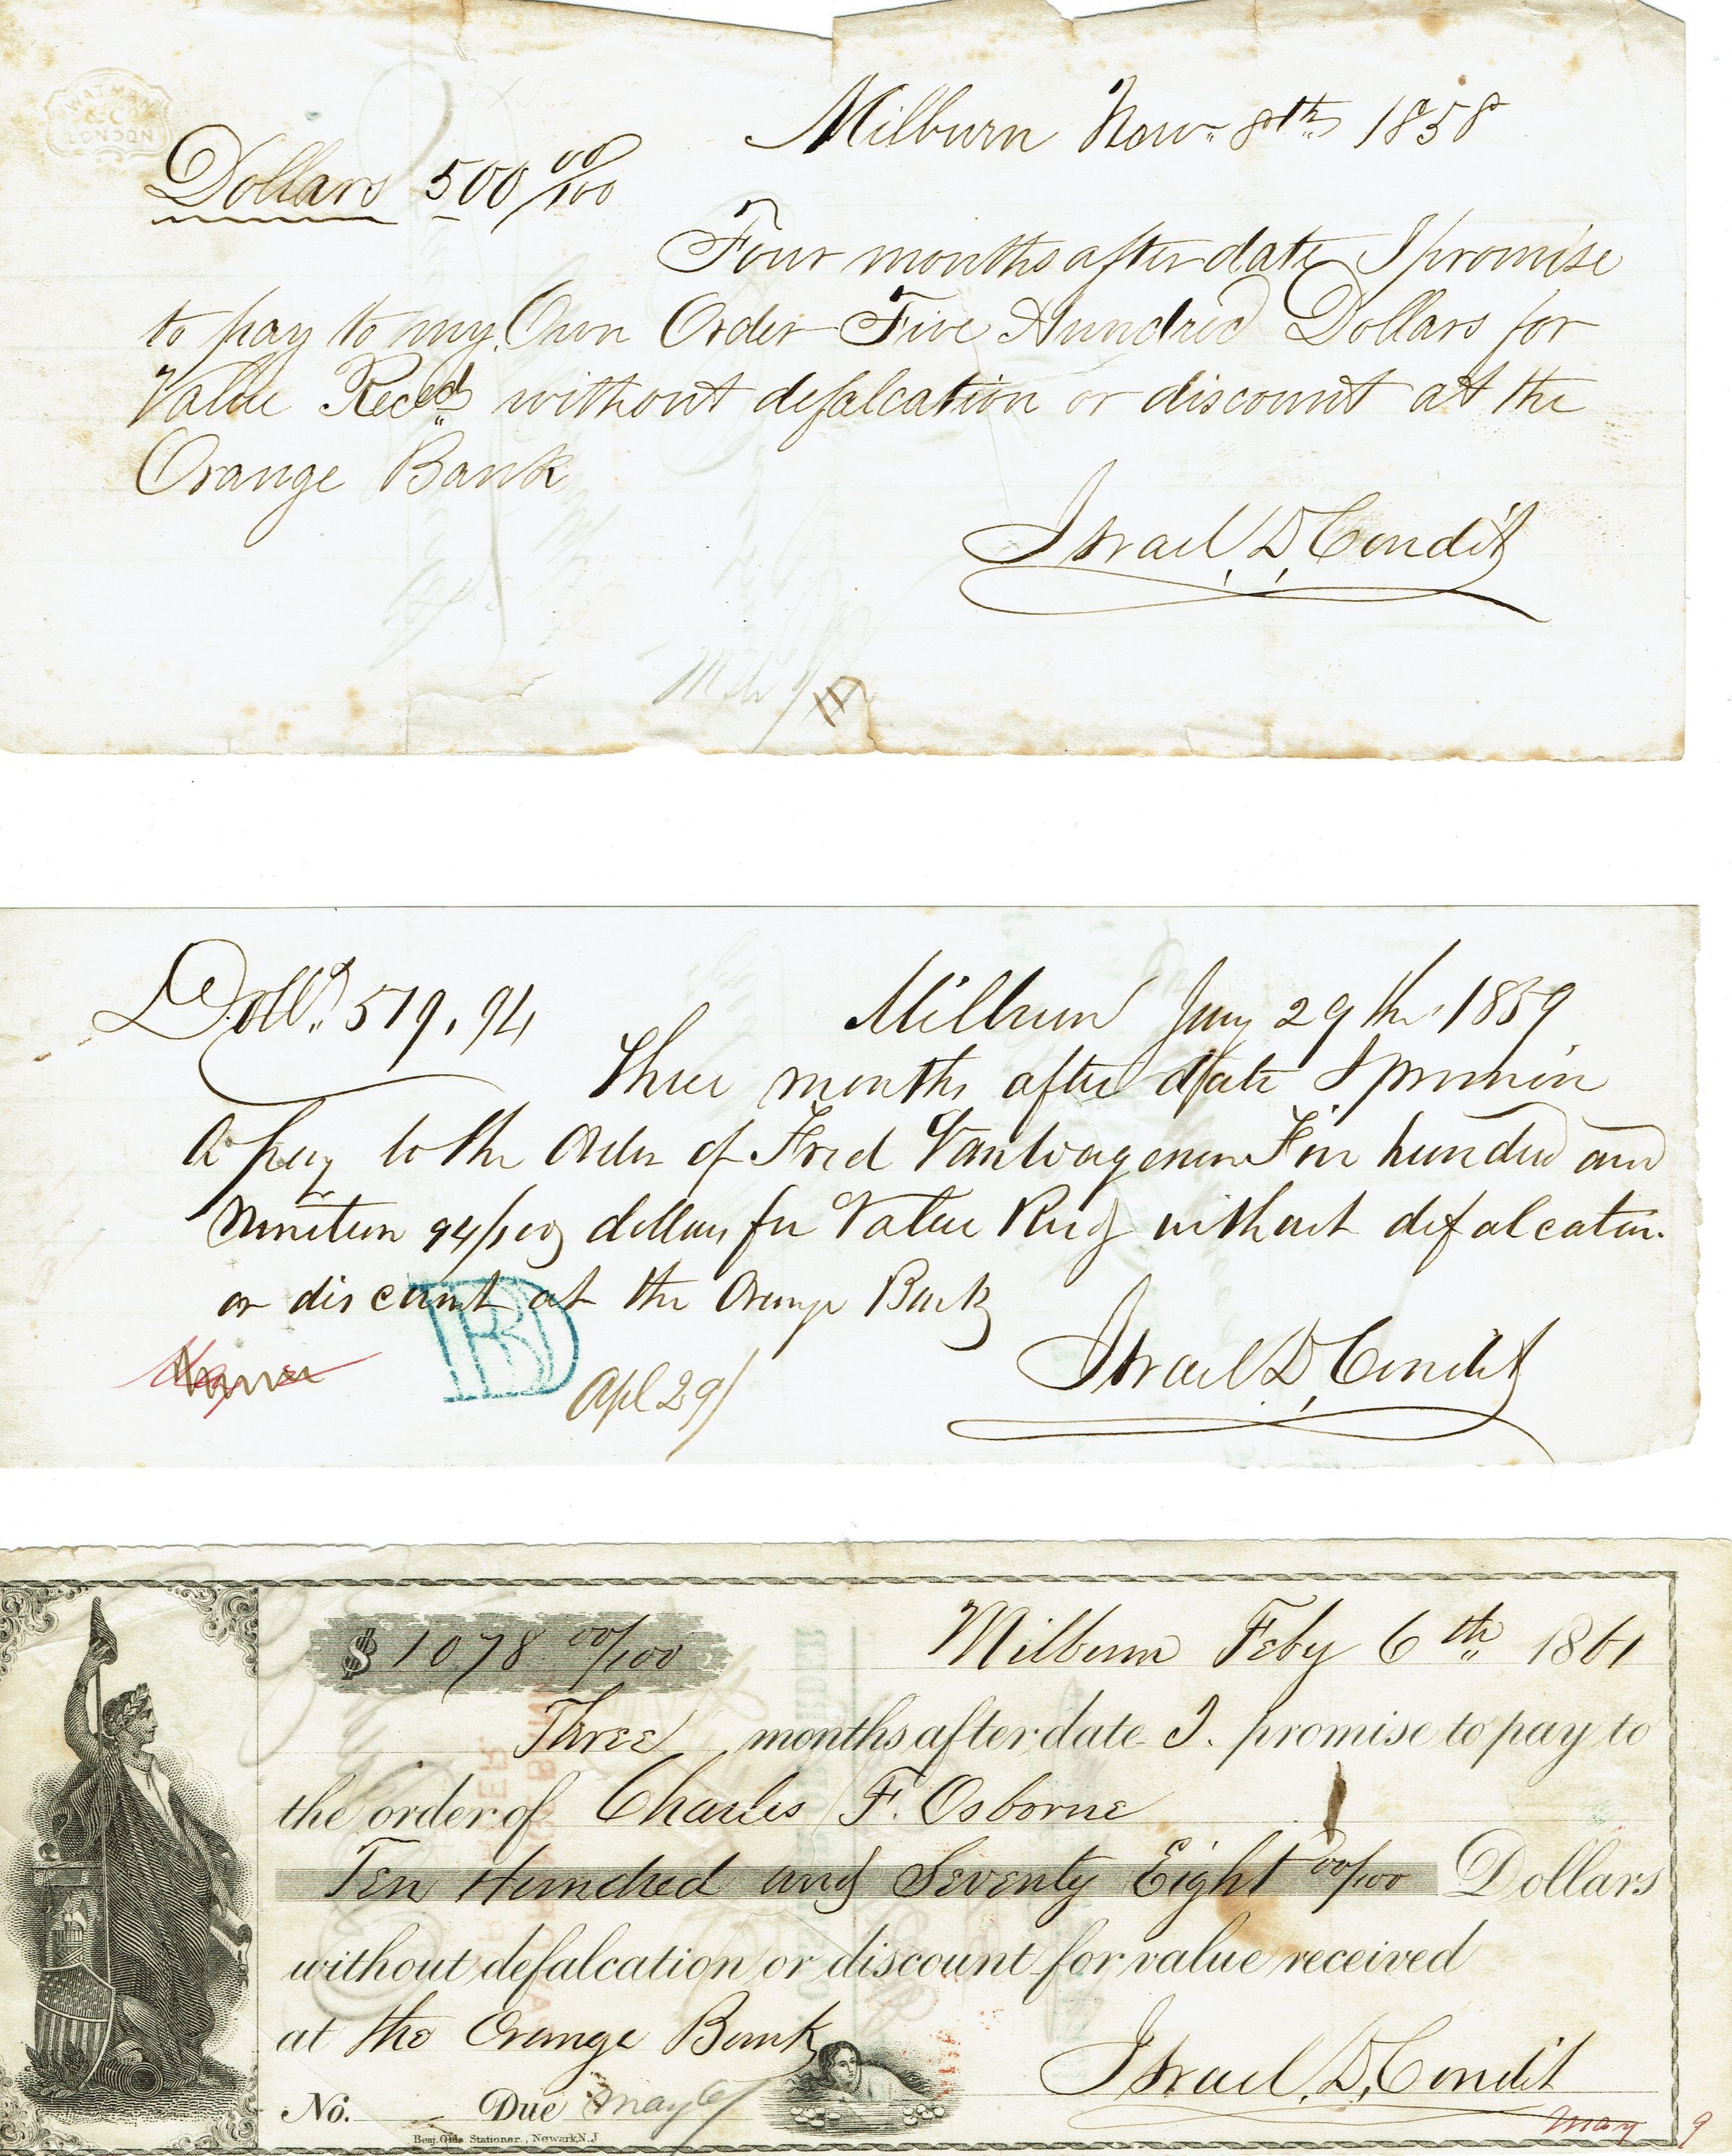 WATMAN
& CO
LONDON
Milburn Nov 8th 1858
Dollars 500 00/100
Four months after date I promise
to pay to my Own Order Five Hundred Dollars for
Value Reced without defalcation or discount at the
Orange Bank
Israel D. Condit
Doll. 519.94 Milburn Jany 29th 1859
Three months after date I promise
to pay to the Order of Fred Vanwagenen Five hundred and
Nineteen 94/100 dollars for Value Recd without defalcation
or discount at the Orange Bank
Israel D. Condit
Apl 29/
$1078 00/100 Milburn Feby 6th 1861
Three months after date I. promise to pay to
the order of Charles F. Osborne
Ten Hundred and Seventy Eight 00/100 Dollars
without defalcation or discount for value received
at the Orange Bank
Israel D. Condit
No. Due May 6/
May 9
Benj. Olds Stationer, Newark, N.J